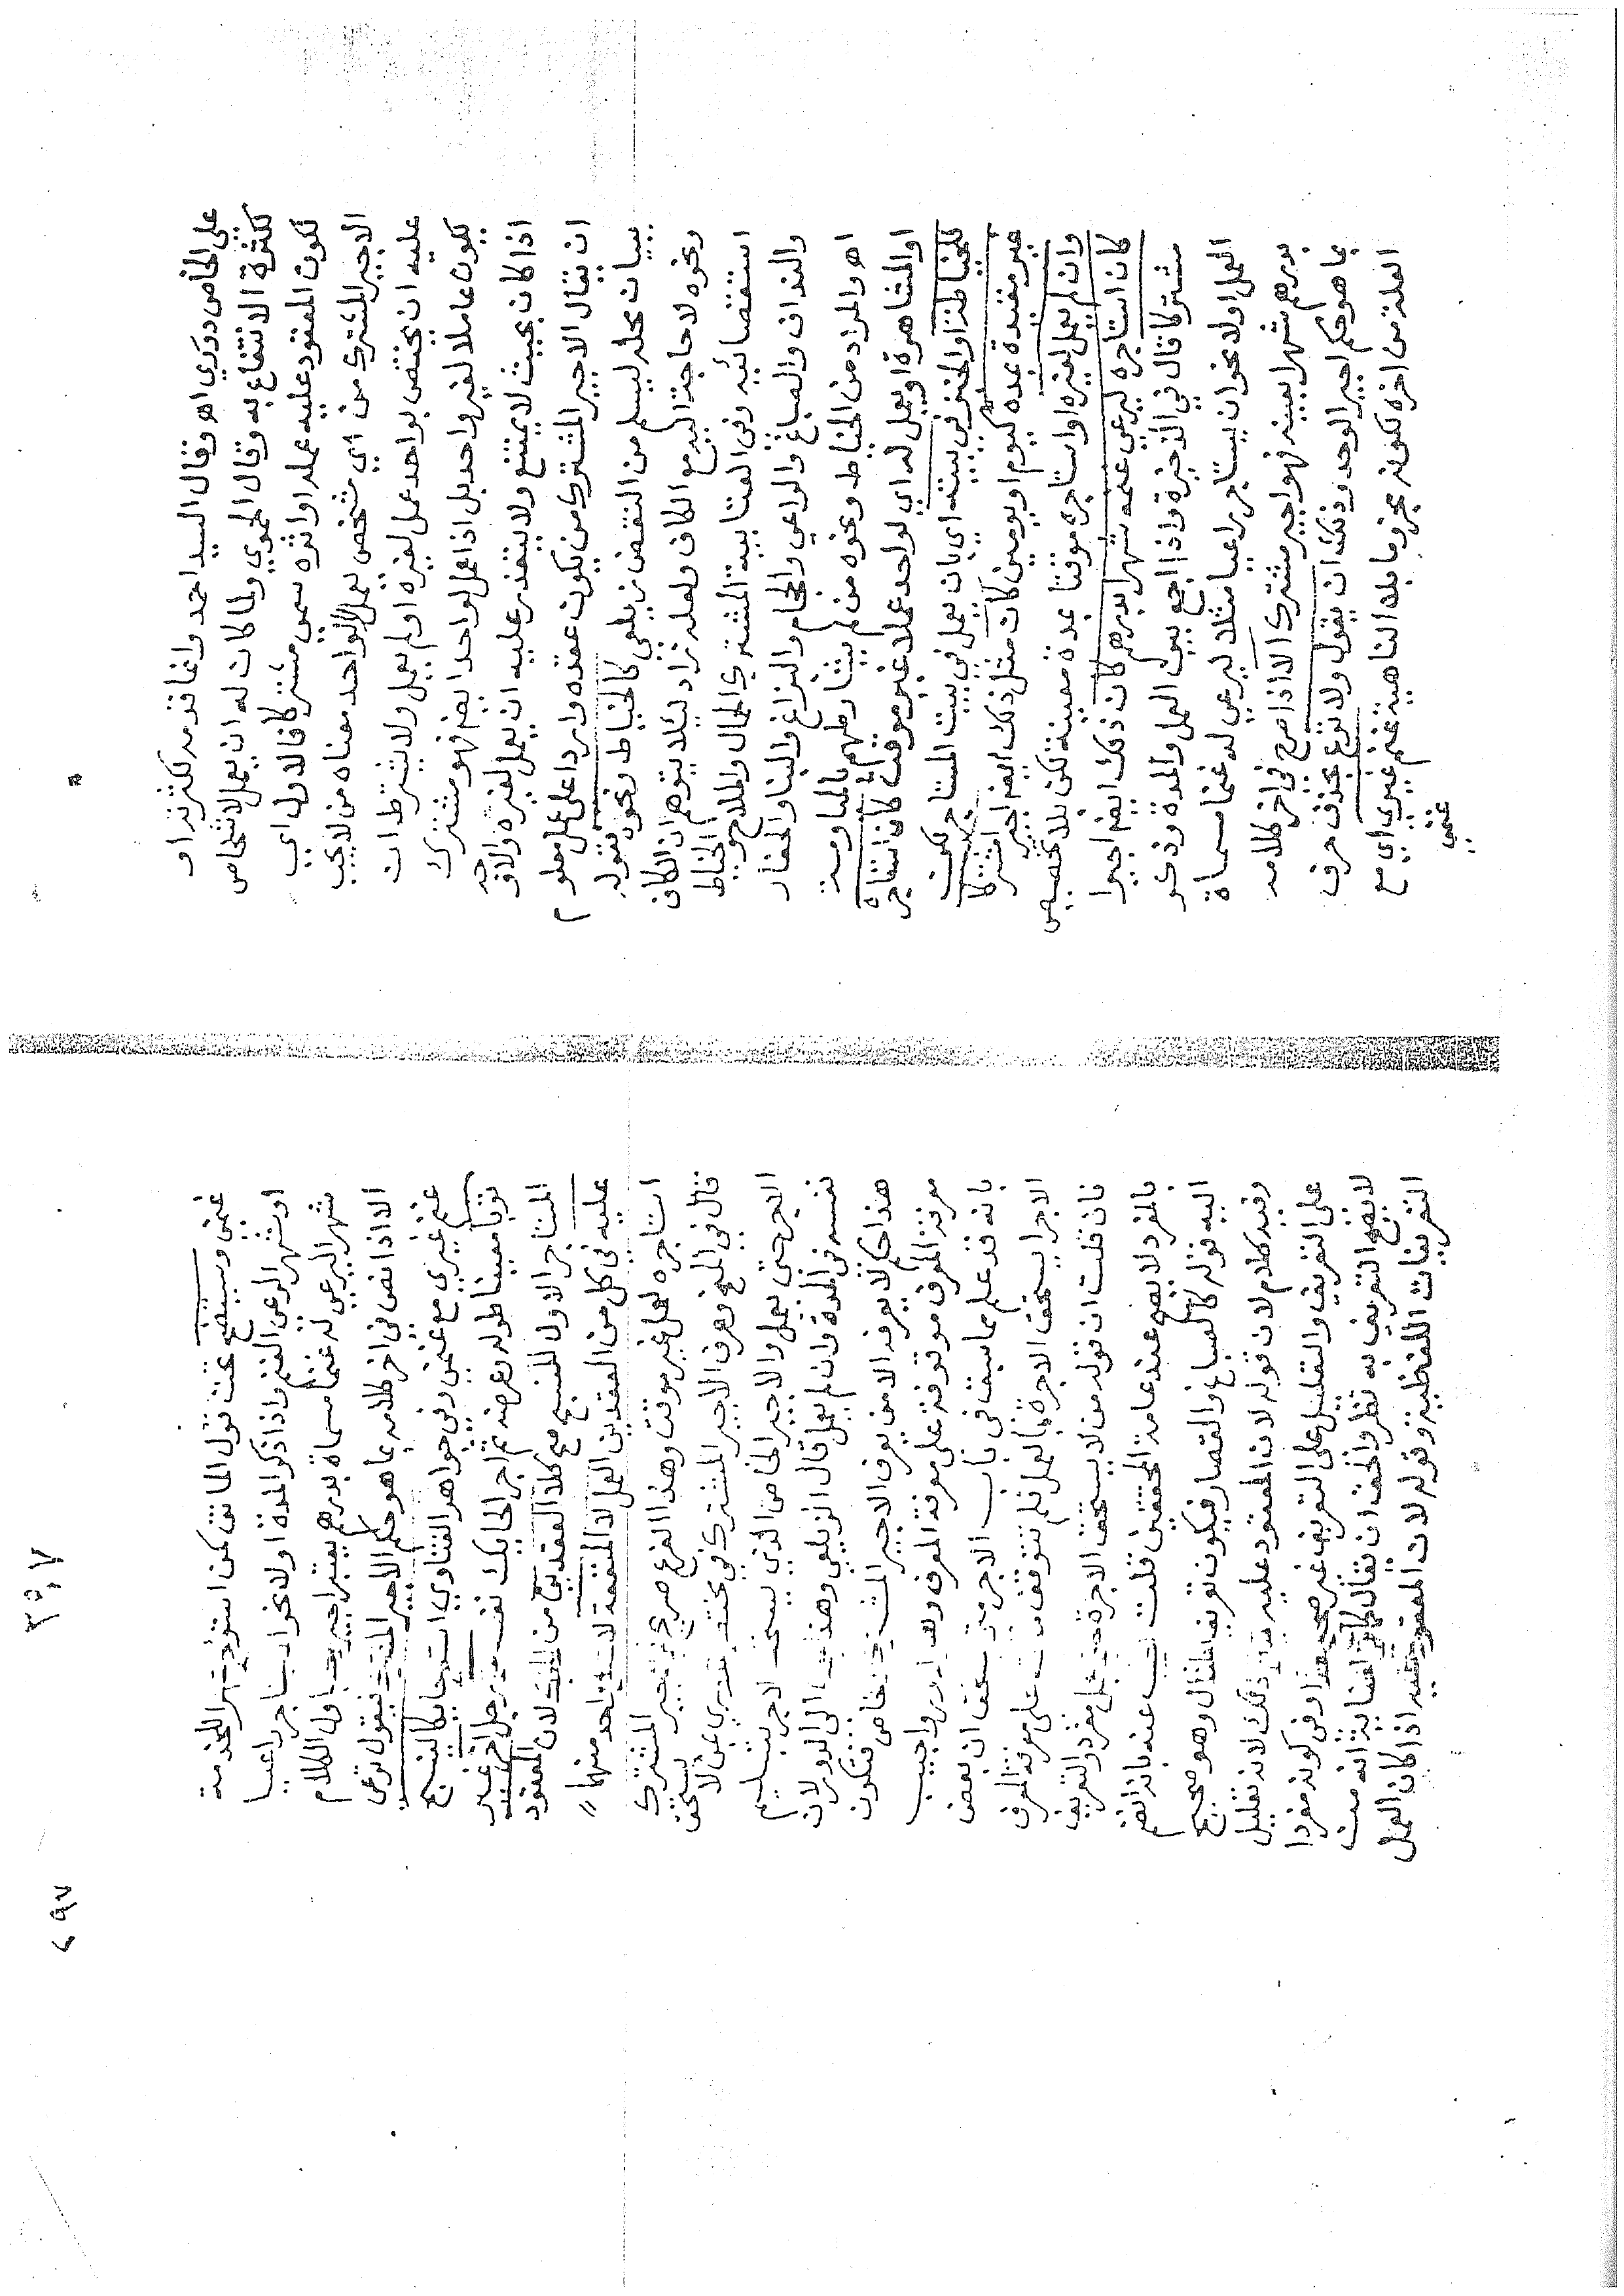 على الخاص دوري اهـ وقال السيد احمد وانما قدمه لكثرته او
لكثرة الانتفاع به وقال الحموي ولما كان له ان يعمل لاشخاص
لكون المعقود عليه عمله او اثره سمي مشتركا فالاول اي
الاجير المشترك من اي شخص يعمل لا لواحد معناه من لا يجب
عليه ان يختص بواحد عمل لغيره او لم يعمل ولا يشترط ان
يكون عاملا لغير واحد بل اذا عمل لواحد ايضا فهو مشترك
اذا كان بحيث لا يمتنع ولا يتعذر عليه ان يعمل لغيره والاوجه
ان يقال الاجير المشترك من يكون عقده واردا على عمل معلوم
ببيان محله ليسلم من النقض زيلعي كالخياط ونحوه بقوله
ونحوه لا حاجة اليه مع الكاف ولعله زاد لئلا يتوهم ان الكاف
استقصائيه وفي العتابية المشترك الحمال والملاح والخياط
والنداف والصباغ والراعي والحجام والبزاغ والبنا والحفار
اهـ والمراد من الخياط ونحوه من لم يشارطهم بالمياومة
او المشاهرة او يعمل له اي لواحد عملا غير موقت كان استاجره
للخياطة او الخبز في بيته اي بان يعمل في بيت المستاجر
غير مقيدة بمدة كيوم او يومين كان مثل ذلك ايضا اجيرا مشتركا
وان لم يعمل لغيره او استاجره موقتا بمدة معينة لكن بلا تخصيص
كان استاجره ليرعى غنمه شهرا بدرهم كان ذلك ايضا اجيرا
مشتركا قال في الذخيرة واذا جمع بين العمل والمدة وذكر
العمل اولا نحو ان يستاجر راعيا مثلا ليرعى له غنما مسماة
بدرهم شهرا بعينه فهو اجير مشترك الا اذا صرح في اخر كلامه
بما هو حكم اجير الوحد وذلك ان يقول ولا ترع بحذف حرف
العلة من اخره لكونه مجزوما بلا الناهية غنم غيري اي مع
غنمي
غنمي وسيتضح تحت قول الماتن كمن استؤجر شهرا للخدمة
او شهرا لرعي الغنم واذا ذكر المدة اولا نحو ان يستاجر راعيا
شهرا ليرعى له غنما مسماة بدرهم يعتبر اجير وحد باول الكلام
الا اذا نص في اخر كلامه بما هو حكم الاجير المشترك فيقول ترعى
غنم غيري مع غنمي وفي جواهر الفتاوى استاجر حايكا لينسج
ثوبا معينا طوله وعرضه ثم اجر الحايك نفسه من رجل اخر غير
المستاجر الاول للنسج صح كلا العقدين لان المعقود
عليه في كل من العقدين العمل لا المنفعة لاستئجار واحد منهما
استاجره لعمل غير موقت وهذا الفرع صريح في الاجير المشترك
قال في المنح وعرف الاجير المشترك في تحت القدوري بمن لا يستحق
الاجر حتى يعمل والاجير الخاص الذي يستحق الاجر بتسليم
نفسه في المدة وان لم يعمل قال الزيلعي وهذا يؤل الى الدور لان
هذا حكم لا يعرفه الا من يعرف الاجير المشترك والخاص فتكون
معرفة المعرف موقوفة على معرفة المعرف وهو الدور واجيب
بانه قد علم مما سبق في باب الاجر متى يستحق ان بعض
الاجراء يستحق الاجرة بالعمل فلم تتوقف معرفته على معرفة المعرف
فان قلت ان قوله من لا يستحق الاجرة حتى يعمل مفرد والتعريف
بالمفرد لا يصح عند عامة المحققين قلت اجيب عنه بانه انضم
اليه قوله كالصباغ والقصار فيكون تعريفا بالمثال وهو صحيح
وفيه كلام لان قوله لان المعقود عليه ينافي ذلك لانه تعليل
على التعريف والتعليل على التعريف غير صحيح هذا وفي كونه مفردا
لا يصح التعريف به نظر والحق ان يقال كما في العناية انه من
التعريفات اللفظية وقوله لان المعقود عليه اذا كان العمل